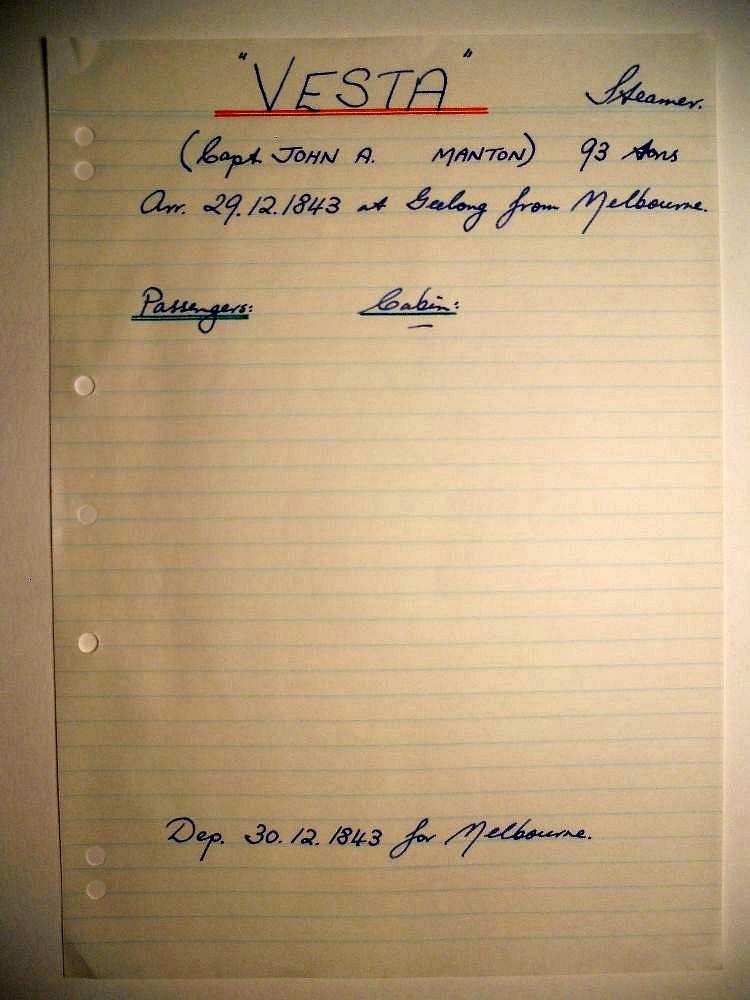 "VESTA" Steamer.
(Capt. JOHN A. MANTON) 93 tons
Arr. 29.12.1843 at Geelong from Melbourne.
Passengers: Cabin:
Dep. 30.12.1843 for Melbourne.